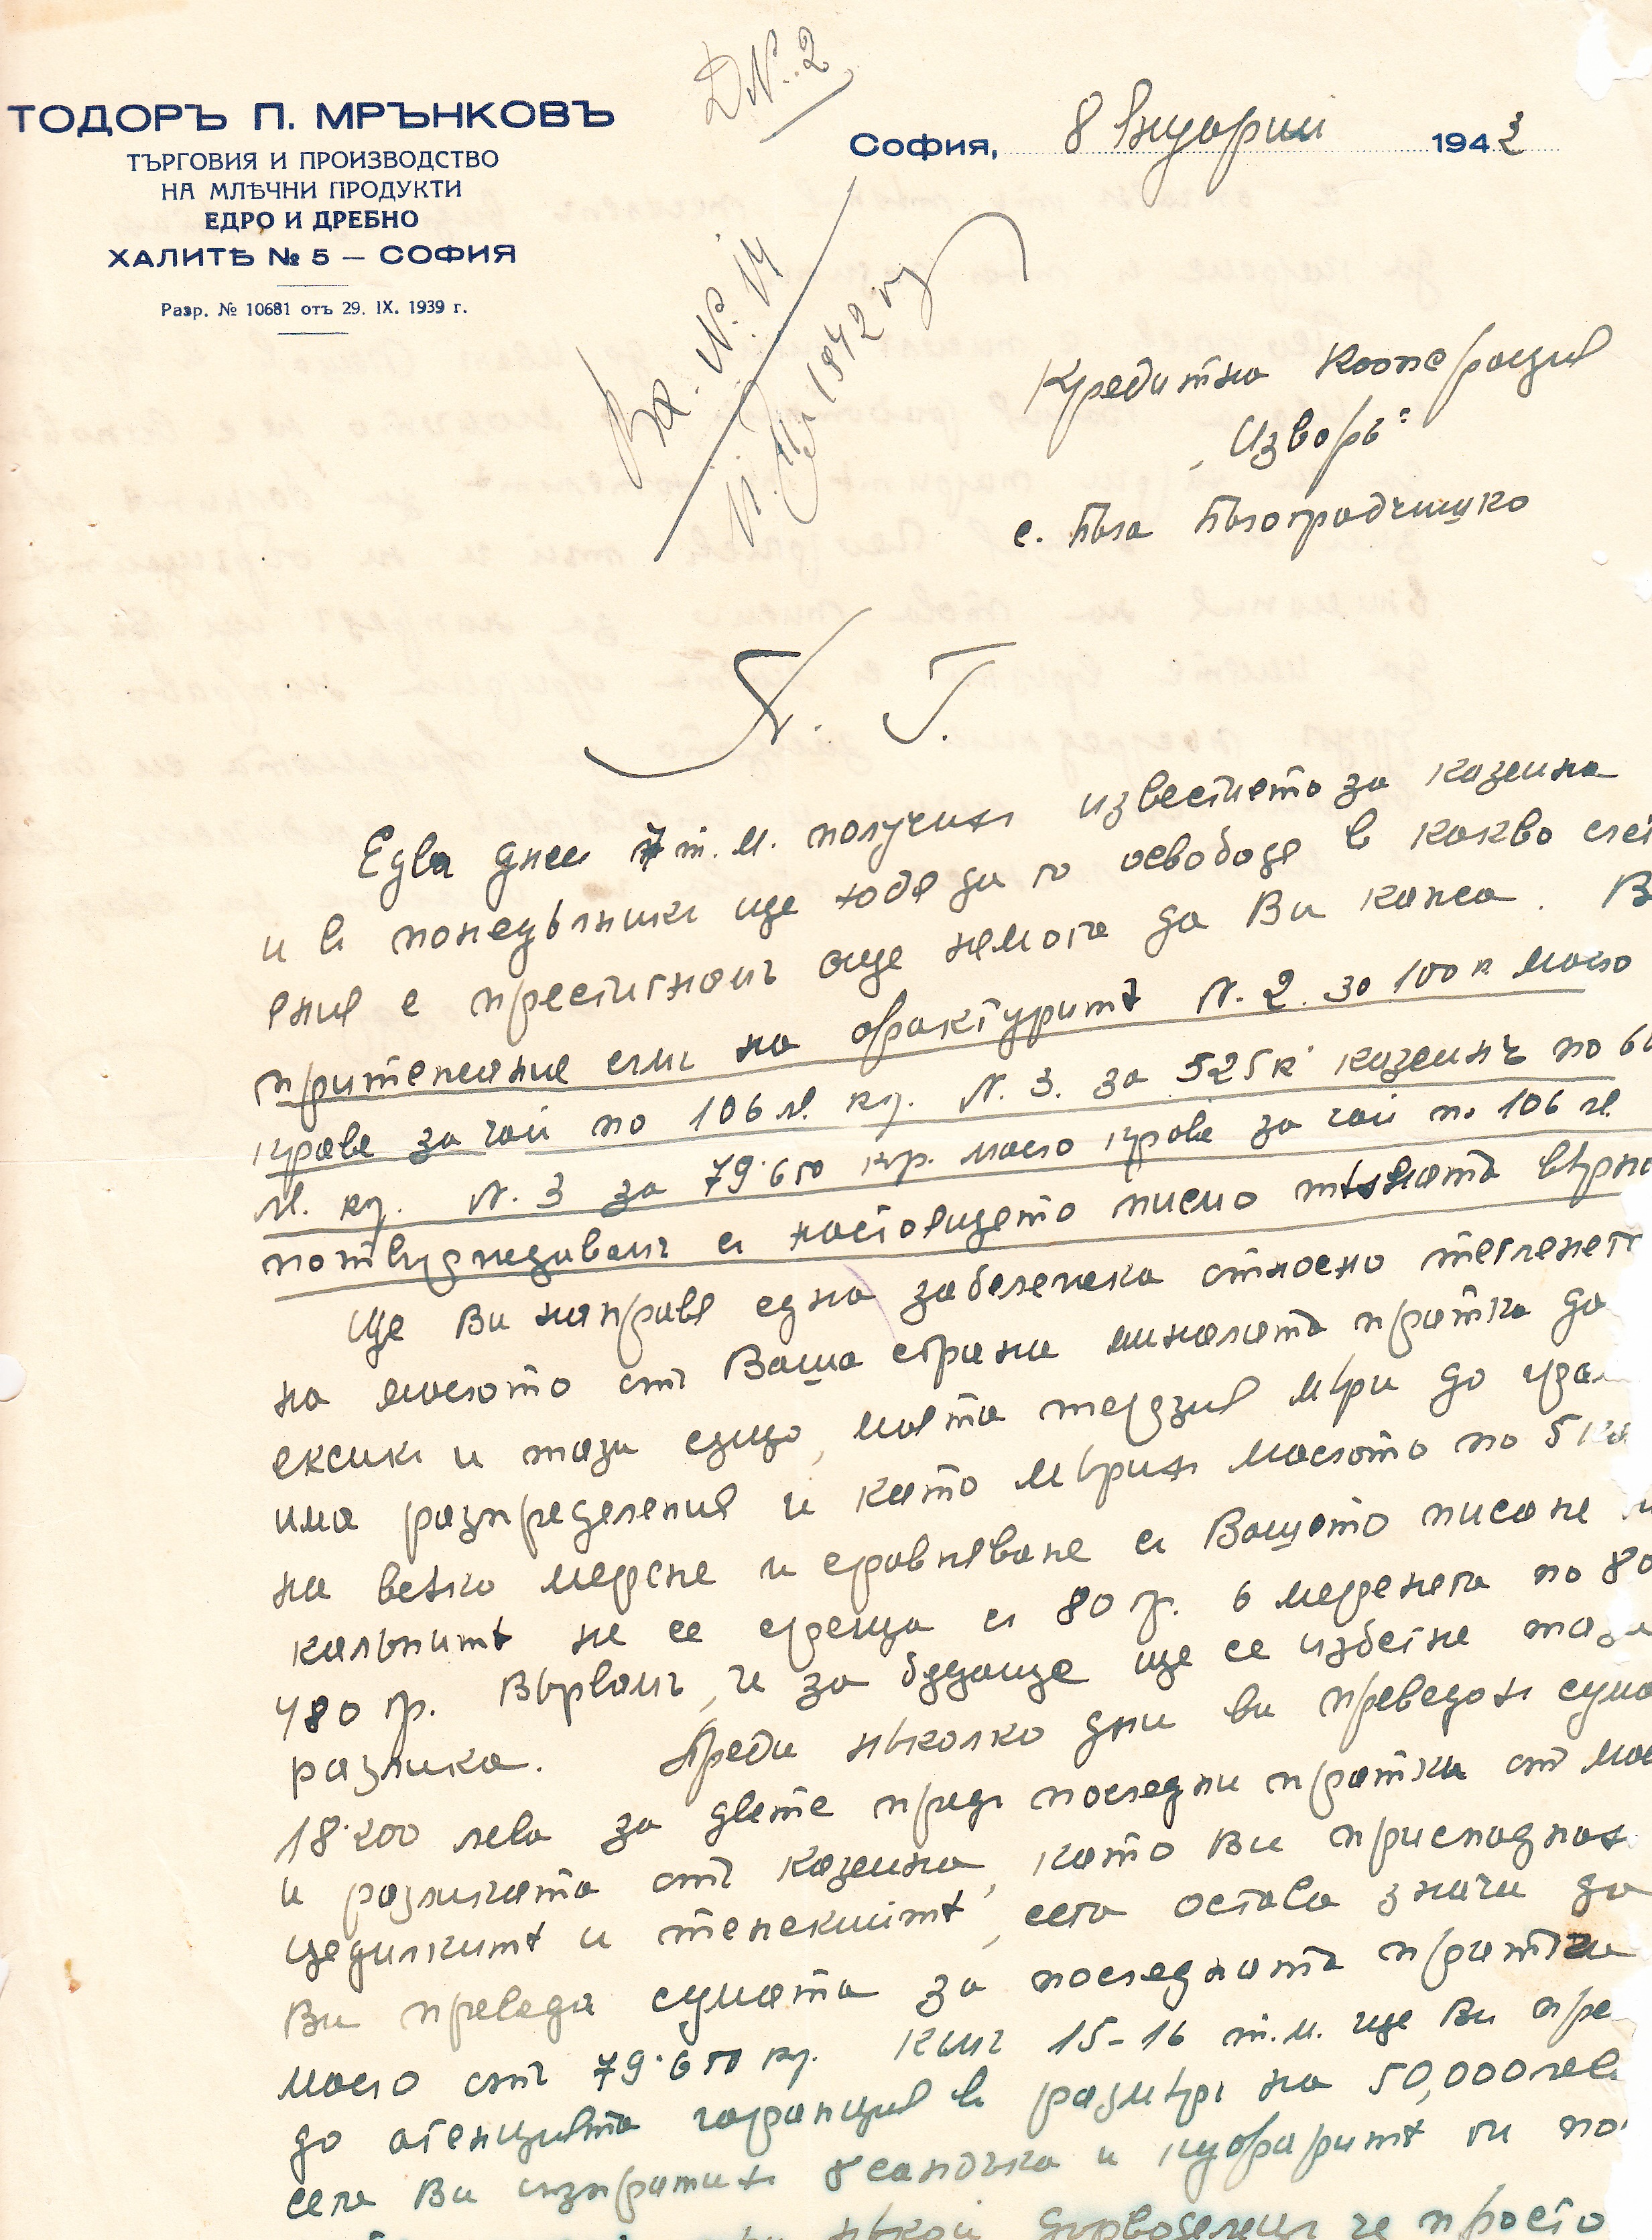 ТОДОРЪ П. МРЪНКОВЪ
ТЪРГОВИЯ И ПРОИЗВОДСТВО
НА МЛѢЧНИ ПРОДУКТИ
ЕДРО И ДРЕБНО
ХАЛИТѢ № 5 — СОФИЯ
Разр. № 10681 отъ 29. IX. 1939 г.
Д№. 2
София, 8 януарий 1942
Вх. №. 14
11. I. 1942 г.
Кредитна Кооперация
„Изворъ"
с. Бѣла Бѣлоградчишко
П. Г.
Едва днес 7 т. м. получих известието за казеина
и въ понедѣлникъ ще ходя да го освободя в какво със
ение е пристигналъ още немога да Ви кажа. В
притежание съмъ на фактуритѣ №. 2. за 100 к масло
краве за чай по 106 л. кг. №. 3. за 525 к казеинъ по 60
л. кг. №. 3 за 79·600 кгр. масло краве за чай по 106 л.
потвърдяваемъ съ настоящето писмо тѣхната вѣрно
Ще Ви направя една забележка относно тегленето
на маслото отъ Ваша страна миналата пратка да
ексикъ и тази също, моята терзия мѣри до грам
има разпределения и като мѣрихъ маслото по 5 ка
на всѣко мерене и сравняване съ Вашето писане
калъпитѣ не се среща съ 80 гр. 6 меренета по 80
480 гр. Вѣрвамъ, че за бѫдаще ще се избегне тази
разлика. Преди нѣколко дни ви преведохъ сума
18·200 лева за двете предъ последни пратки отъ мас
и разликата отъ казеина, като Ви приспаднахъ
цедилкитѣ и тенекиитѣ, сега остава значи да
Ви преведа сумата за последната пратка
масло отъ 79·600 кг. Къмъ 15-16 т. м. ще Ви пре
до агенцията гаранция въ размѣръ на 50,000 лев
сега Ви изпратихъ 8 сандъка и ги по
нѣкой дърводелецъ че просто